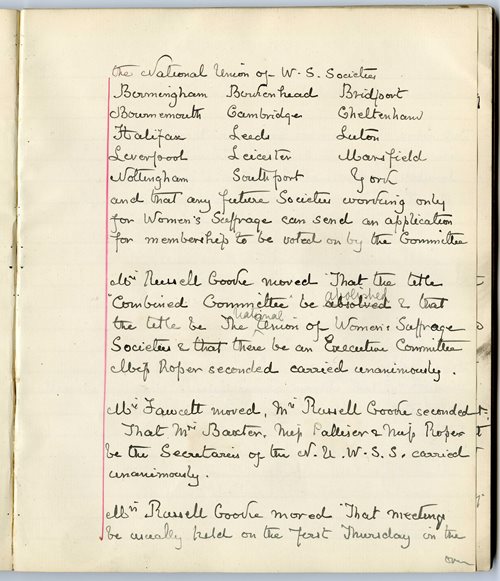 the National Union of W. S. Societies
Birmingham Birkenhead Bridport
Bournemouth Cambridge Cheltenham
Halifax Leeds Luton
Liverpool Leicester Mansfield
Nottingham Southport York
and that any future Societies working only
for Women's Suffrage can send an application
for membership to be voted on by the Committee
Mrs Russell Cooke moved "That the title
"Combined Committee" be absolved & that
abolished
the title be The Union of Women's Suffrage
national
Societies & that there be an Executive Committee
Miss Roper seconded carried unanimously.
Mrs Fawcett moved, Mrs Russell Cooke seconded
That Mrs Baxter, Miss Palliser & Miss Roper
be the Secretaries of the N. U. W. S. S. carried
unanimously.
Mrs Russell Cooke moved "That meetings
be usually held on the first Thursday in the
over